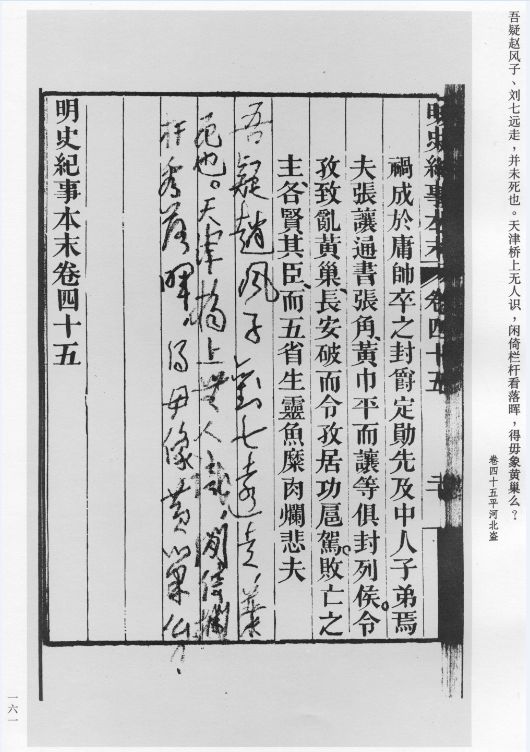 吾疑赵风子、刘七远走，并未死也。天津桥上无人识，闲倚栏杆看落晖，得毋象黄巢么？
卷四十五平河北盗
明史紀事本末 卷四十五
禍成於庸帥卒之封爵定勛先及中人子弟焉
夫張讓通書張角黃巾平而讓等俱封列侯。令
孜致亂黃巢長安破而令孜居功扈駕。敗亡之
主、各賢其臣、而五省生靈魚糜肉爛悲夫
吾疑趙風子劉七遠走，並
未死也。天津橋上無人識，閒倚欄
杆看落暉，得毋像黃巢么？
明史紀事本末卷四十五
一六一